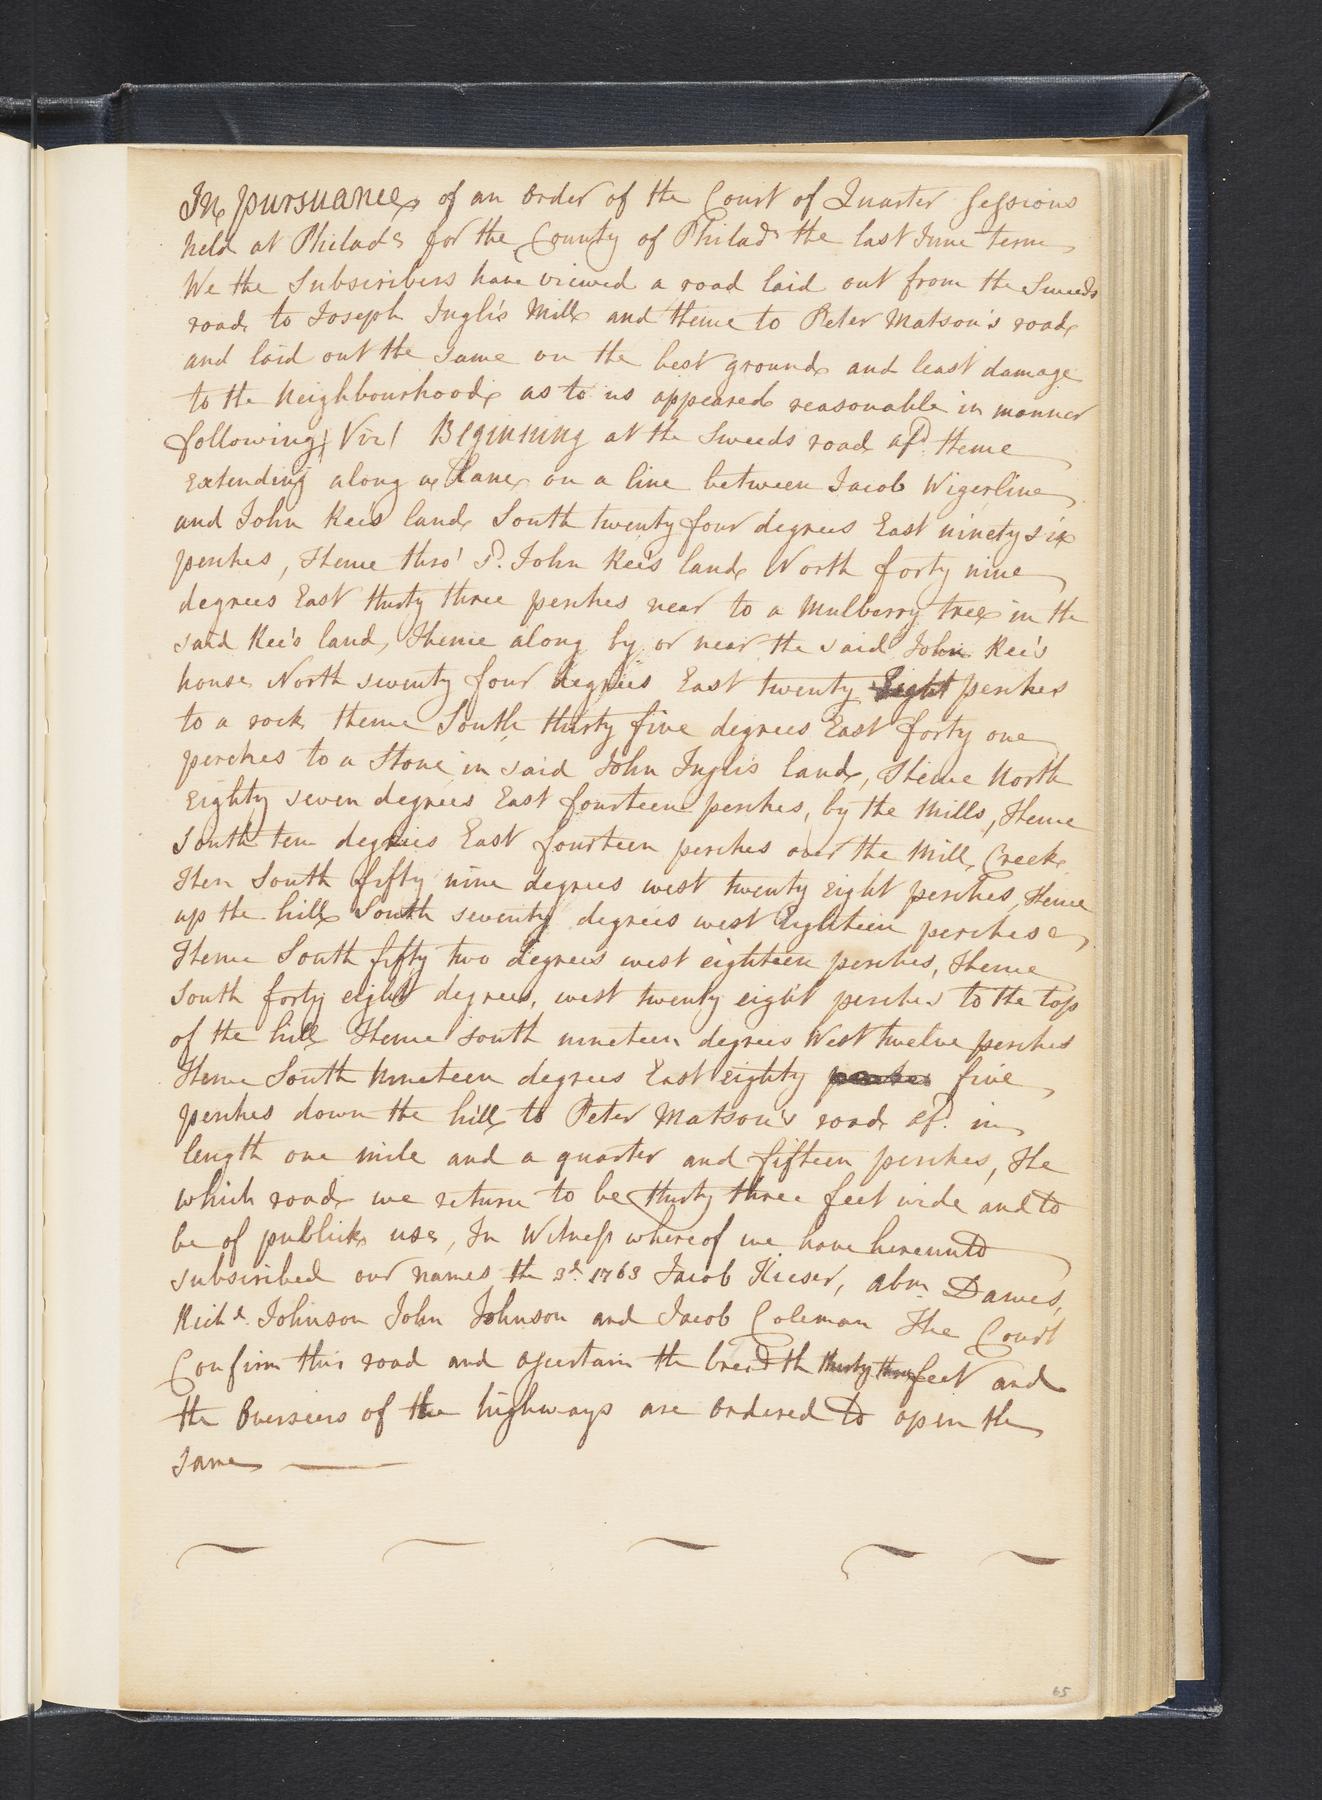 In pursuance of an order of the Court of Quarter Sessions
held at Philada for the County of Philada the last June term
We the Subscribers have viewed a road laid out from the Sweeds
road to Joseph Ingli's Mill and thence to Peter Matson's road
and laid out the same on the best ground and least damage
to the Neighbourhood as to us appeared reasonable in manner
following Viz! Beginning at the Sweeds road afd. thence
Extending along a Lane on a line between Jacob Wigerline
and John Rees land South twenty four degrees East ninety six
perches, Thence thro' sd. John Rees land North forty nine
degrees East thirty three perches near to a Mulberry tree in the
said Ree's land, Thence along by or near the said John Ree's
house North seventy four degrees East twenty Eight perches
to a rock thence South thirty five degrees East forty one
perches to a Stone in said John Inglis land, Thence North
Eighty seven degrees East fourteen perches, by the Mills, Thence
South ten degrees East fourteen perches over the Mill Creek
Then South fifty nine degrees west twenty Eight perches, Thence
up the hill South seventy degrees west Eighteen perches
Thence South fifty two degrees west eighteen perches, Thence
South forty eight degrees, west twenty eight perches to the top
of the hill Thence South nineteen degrees West twelve perches
Thence South Nineteen degrees East eighty five
perches down the hill to Peter Matson's road afd. in
length one mile and a quarter and fifteen perches, The
which road we return to be thirty three feet wide and to
be of publick use, In Witness whereof we have hereunto
subscribed our names the 3d. 1763 Jacob Kieser, Abm. Dawes,
Richd. Johnson John Johnson and Jacob Coleman The Court
Confirm this road and ascertain the breadth thirty three feet and
the Overseers of the highways are ordered to open the
Same
65